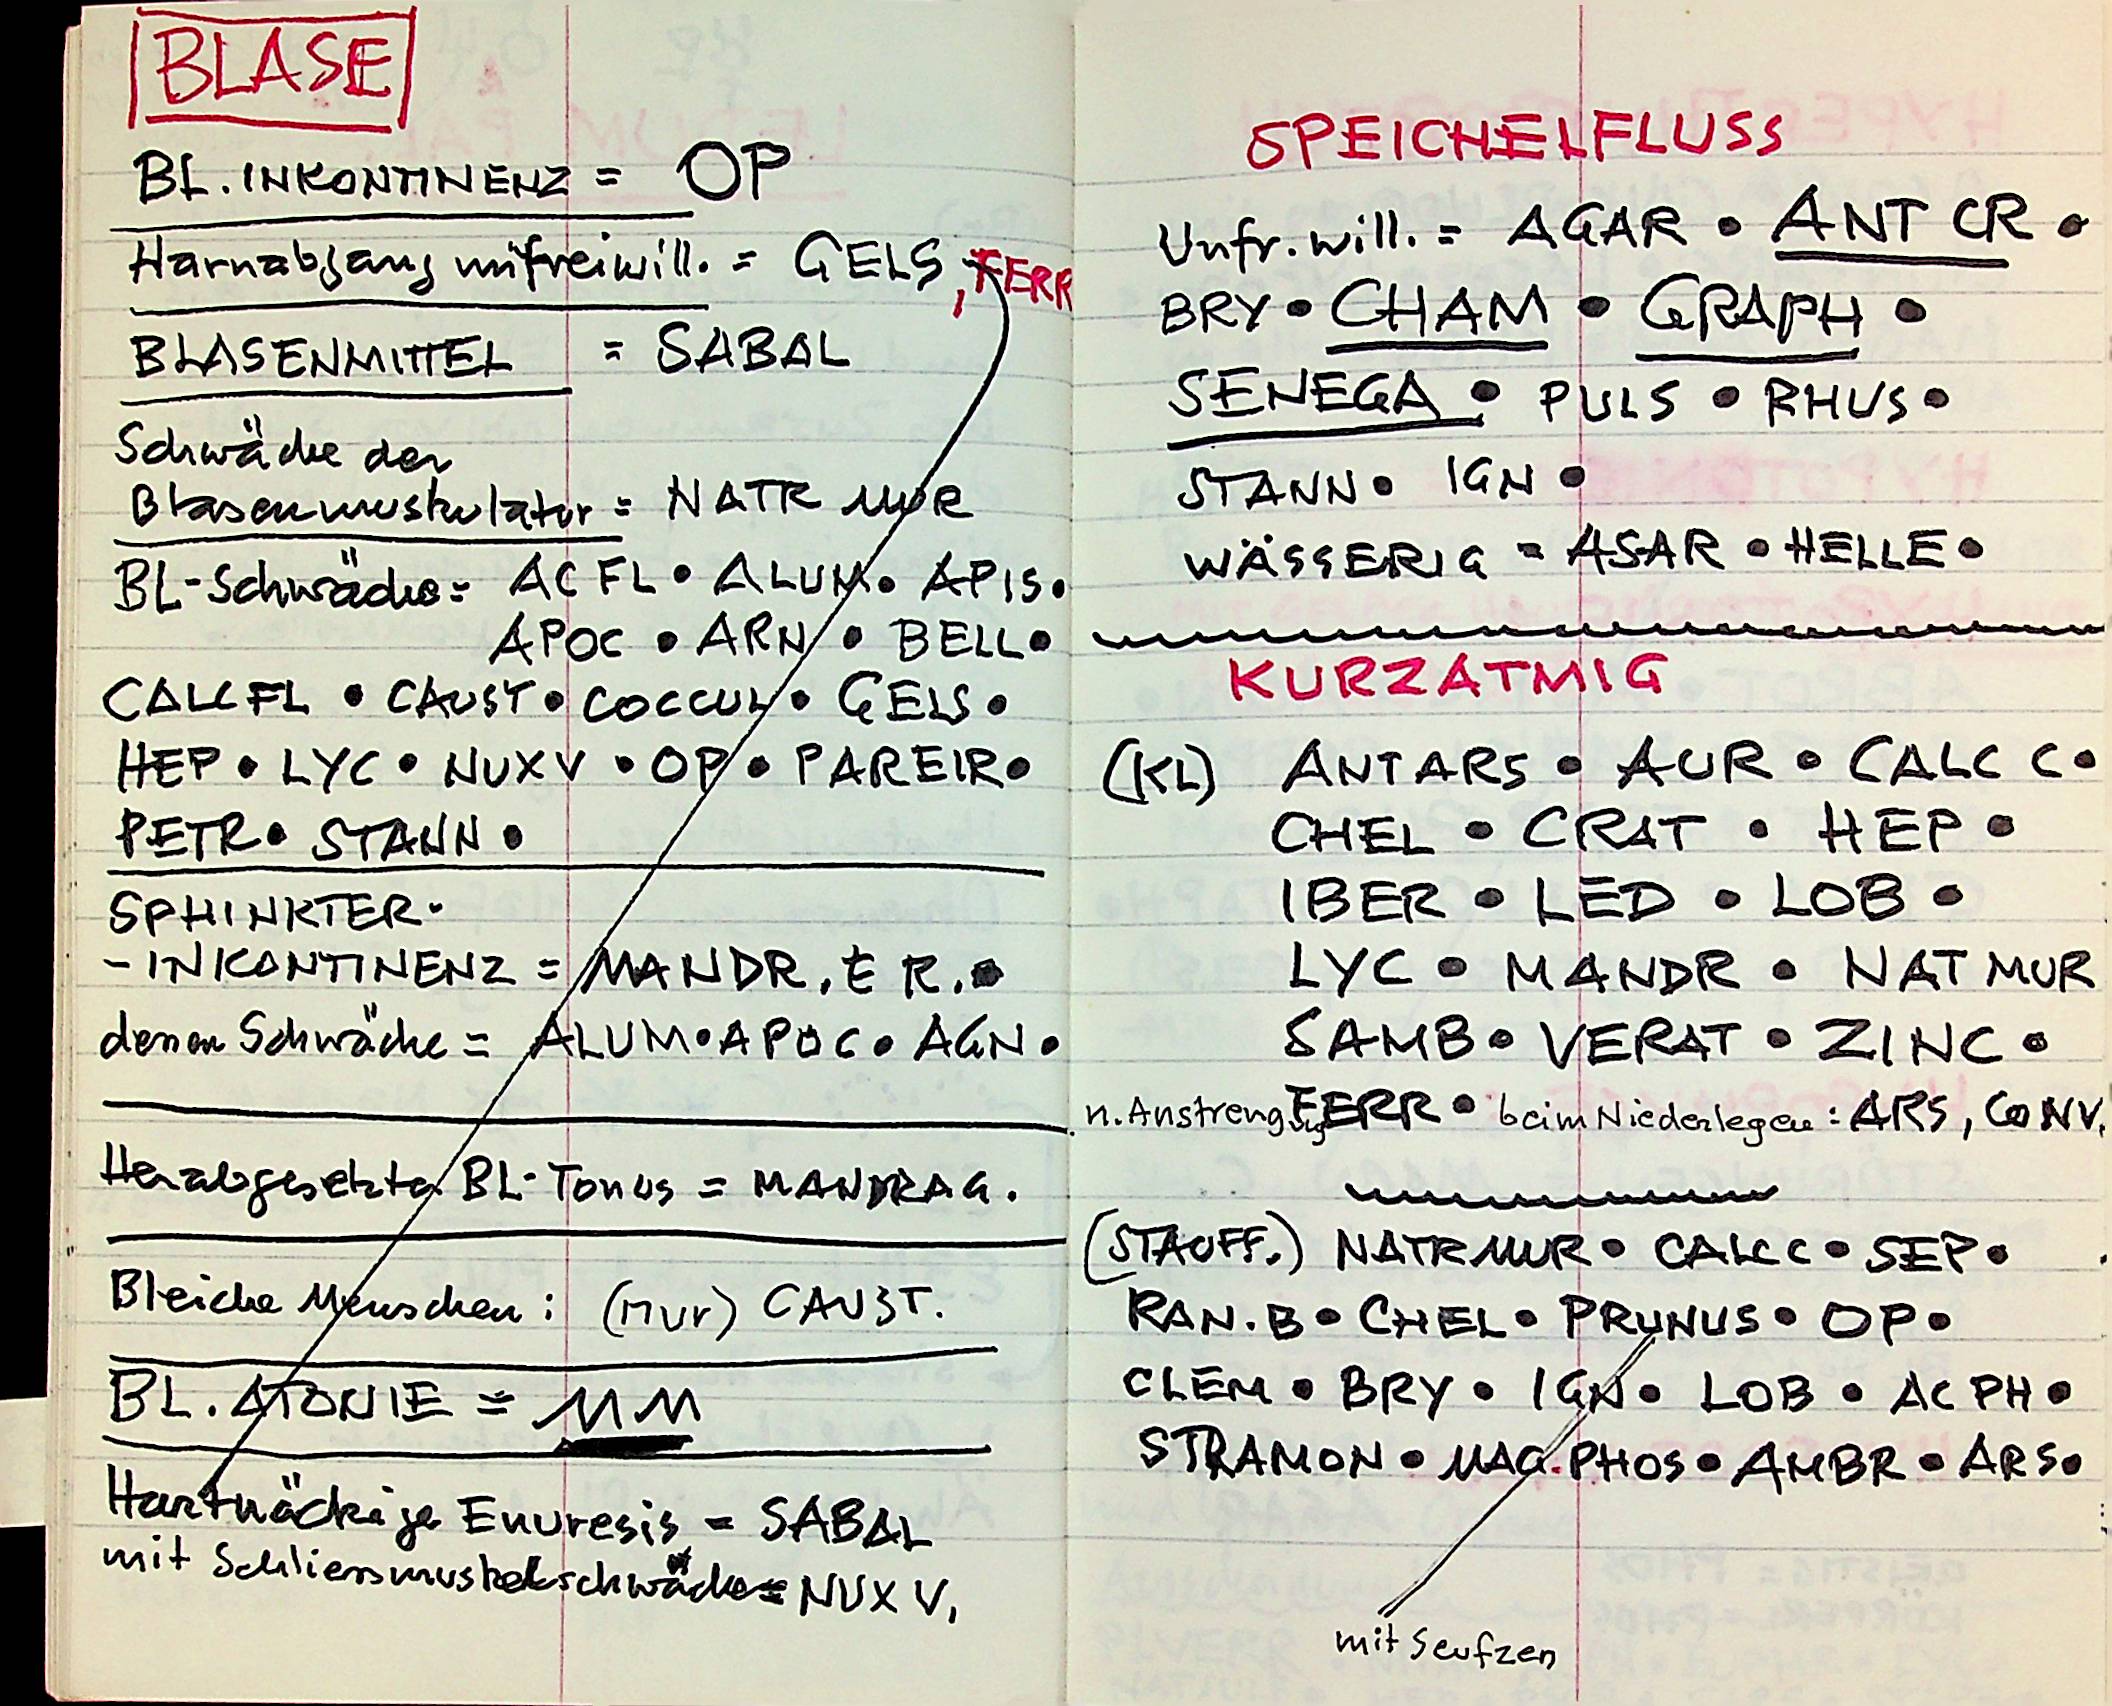 BLASE
BL. INKONTINENZ = OP
Harnabgang unfreiwill. = GELS, FERR
BLASENMITTEL = SABAL
Schwäche der
Blasenmuskulatur = NATR MUR
BL-Schwäche = AC FL • ALUM • APIS •
APOC • ARN • BELL •
CALC FL • CAUST • COCCUL • GELS •
HEP • LYC • NUX V • OP • PAREIR •
PETR • STANN •
SPHINKTER-
-INKONTINENZ = MANDR. E R. •
deren Schwäche = ALUM • APOC • AGN •
Herabgesetzter BL-Tonus = MANDRAG.
Bleiche Menschen : (nur) CAUST.
BL. ATONIE = MM
Hartnäckige Enuresis = SABAL
mit Schliessmuskelschwäche = NUX V,
SPEICHELFLUSS
Unfr. will. = AGAR • ANT CR •
BRY • CHAM • GRAPH •
SENEGA • PULS • RHUS •
STANN • IGN •
WÄSSERIG = ASAR • HELLE •
KURZATMIG
(KL) ANT ARS • AUR • CALC C •
CHEL • CRAT • HEP •
IBER • LED • LOB •
LYC • MANDR • NAT MUR
SAMB • VERAT • ZINC •
n. Anstrengung FERR • beim Niederlegen : ARS, CONV.
(STAUFF.) NATR MUR • CALC C • SEP •
RAN. B • CHEL • PRUNUS • OP •
CLEM • BRY • IGN • LOB • AC PH •
STRAMON • MAG. PHOS • AMBR • ARS •
mit Seufzen